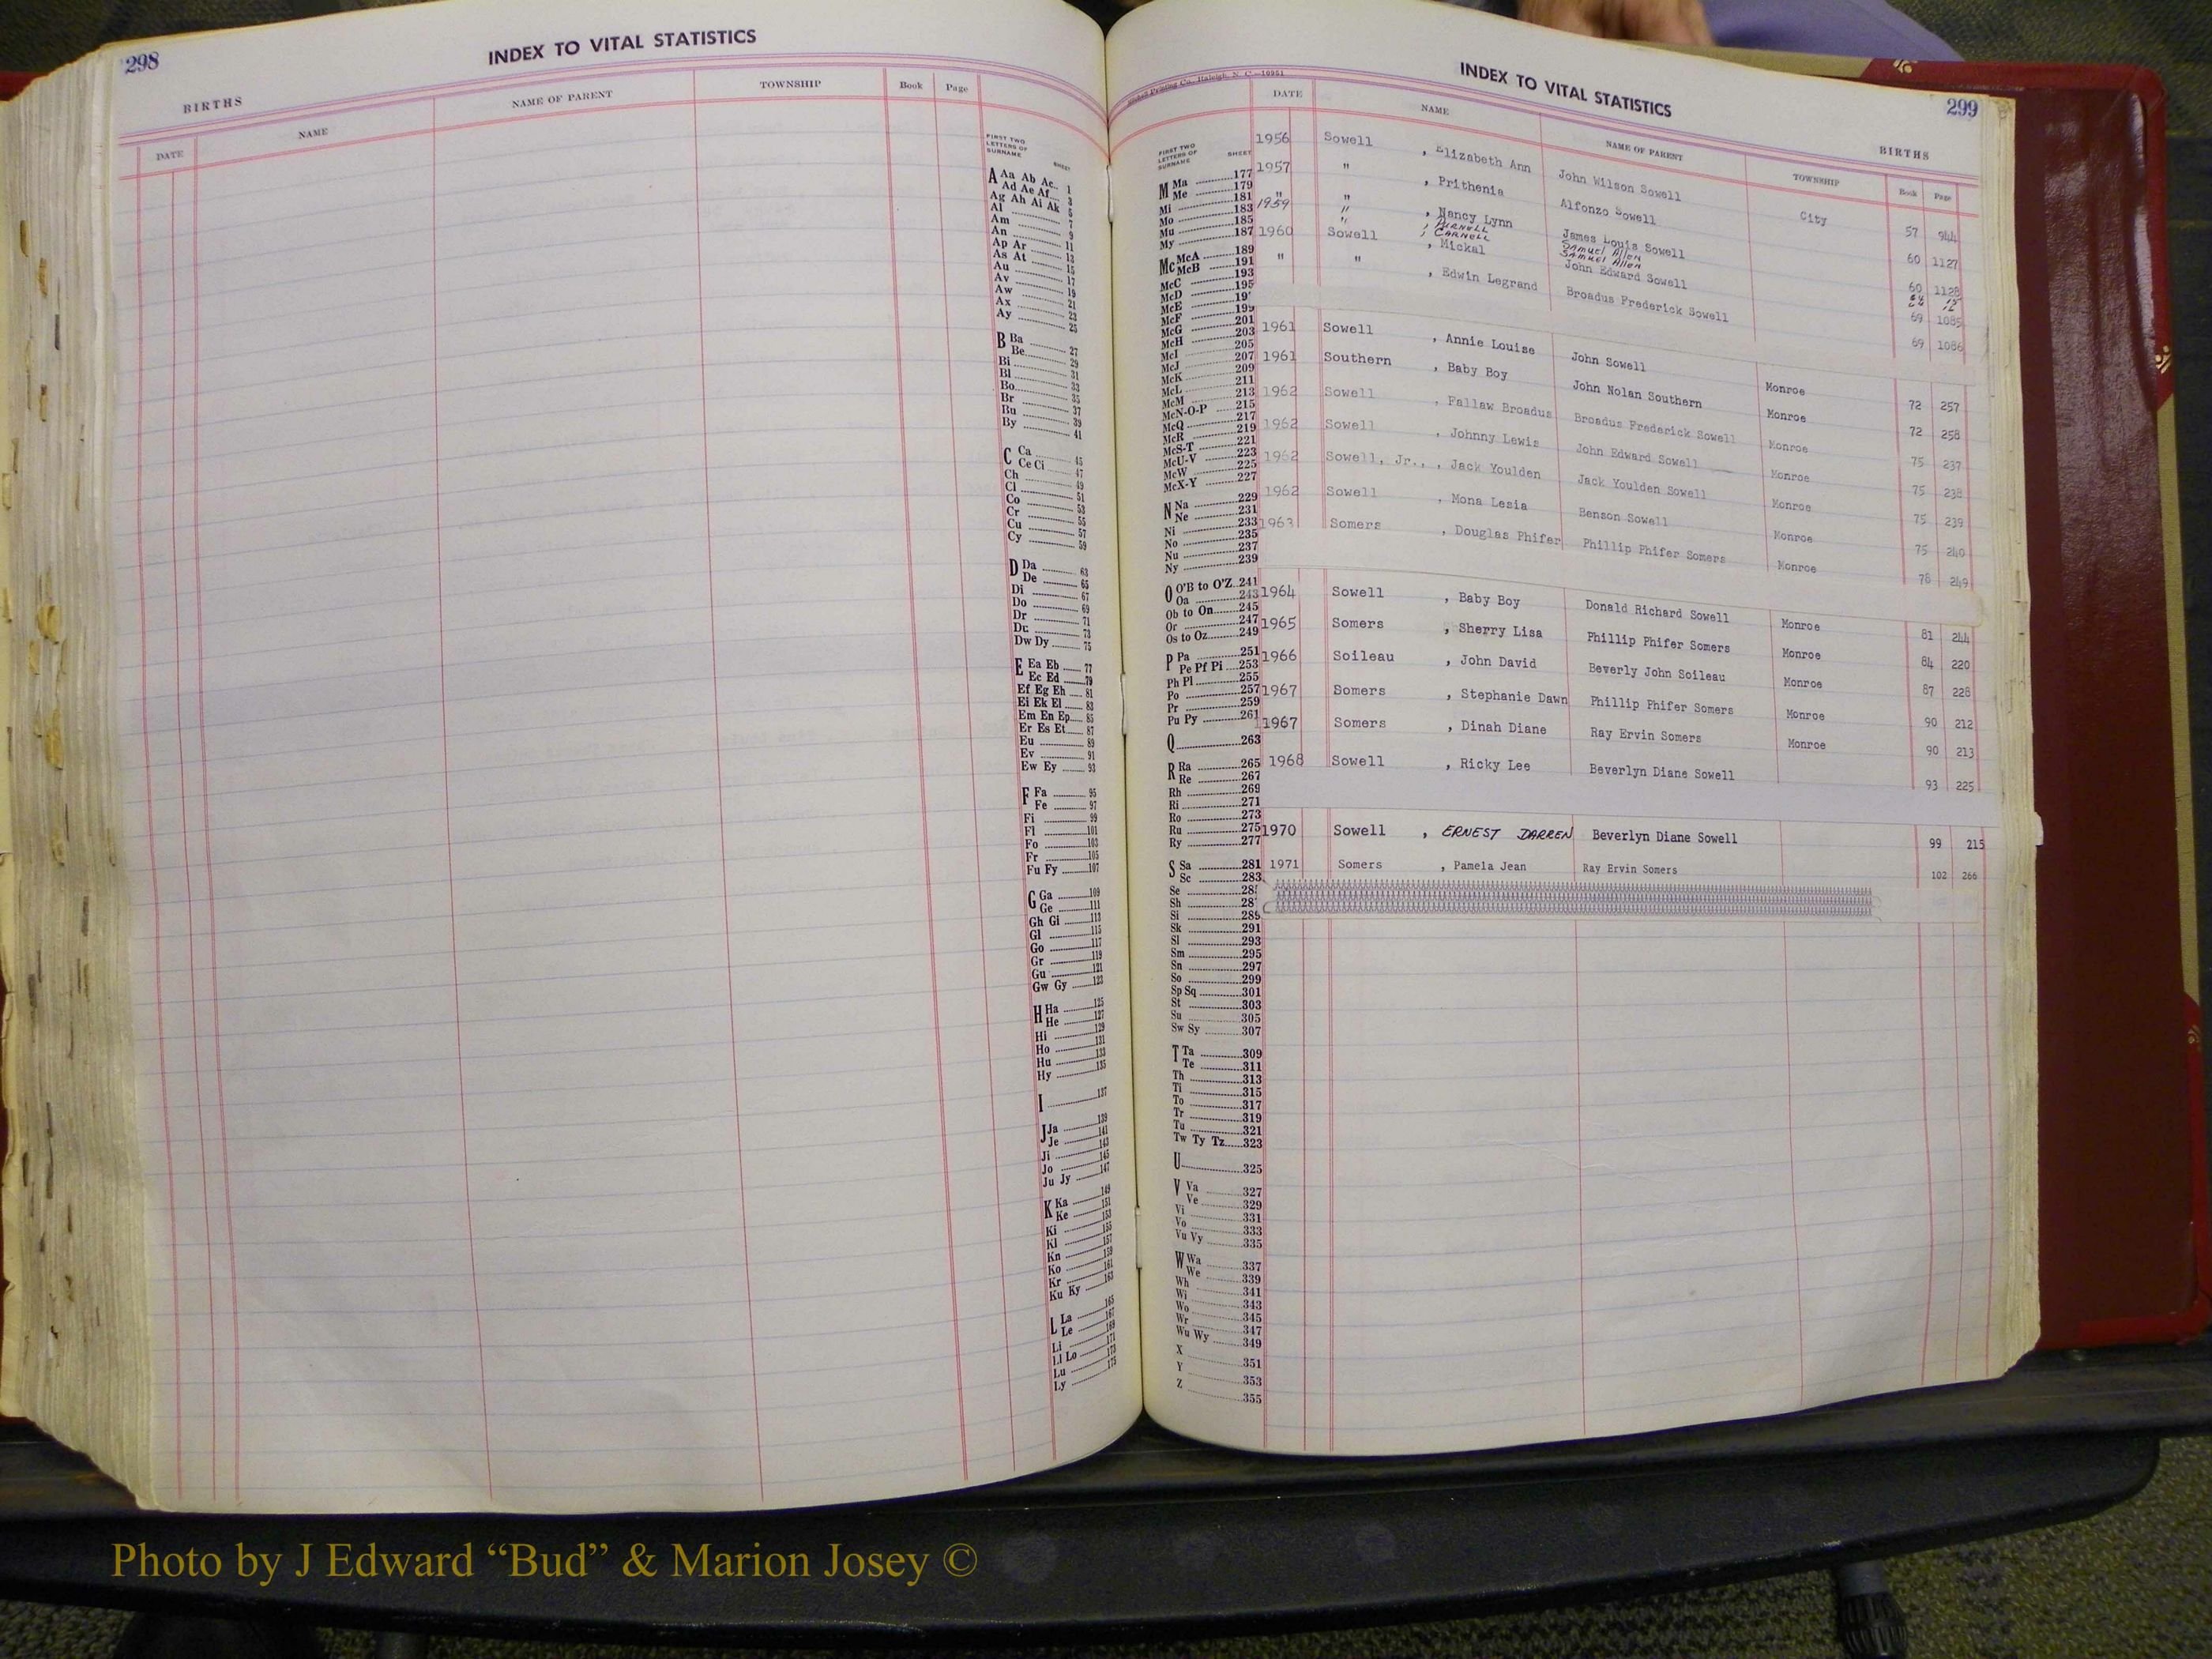 298
INDEX TO VITAL STATISTICS
BIRTHS
DATE NAME NAME OF PARENT TOWNSHIP Book Page
FIRST TWO LETTERS OF SURNAME SHEET
A Aa Ab Ac 1
Ad Ae Af 3
Ag Ah Ai Ak 5
Al 7
Am 9
An 11
Ap Ar 13
As At 15
Au 17
Av 19
Aw 21
Ax 23
Ay 25
B Ba 27
Be 29
Bi 31
Bl 33
Bo 35
Br 37
Bu 39
By 41
C Ca 45
Ce Ci 47
Ch 49
Cl 51
Co 53
Cr 55
Cu 57
Cy 59
D Da 63
De 65
Di 67
Do 69
Dr 71
Du 73
Dw Dy 75
E Ea Eb 77
Ec Ed 79
Ef Eg Eh 81
Ei Ek El 83
Em En Ep 85
Er Es Et 87
Eu 89
Ev 91
Ew Ey 93
F Fa 95
Fe 97
Fi 99
Fl 101
Fo 103
Fr 105
Fu Fy 107
G Ga 109
Ge 111
Gh Gi 113
Gl 115
Go 117
Gr 119
Gu 121
Gw Gy 123
H Ha 125
He 127
Hi 129
Ho 131
Hu 133
Hy 135
I 137
J Ja 139
Je 141
Ji 143
Jo 145
Ju Jy 147
K Ka 149
Ke 151
Ki 153
Kl 155
Kn 157
Ko 159
Kr 161
Ku Ky 163
L La 165
Le 167
Li 169
Ll Lo 171
Lu 173
Ly 175
299
INDEX TO VITAL STATISTICS
BIRTHS
Printing Co., Raleigh, N. C.—10951
DATE NAME NAME OF PARENT TOWNSHIP Book Page
FIRST TWO LETTERS OF SURNAME SHEET
M Ma 177
Me 179
Mi 181
Mo 183
Mu 185
My 187
Mc McA 189
McB 191
McC 193
McD 195
McE 19
McF 199
McG 201
McH 203
McI 205
McJ 207
McK 209
McL 211
McM 213
McN-O-P 215
McQ 217
McR 219
McS-T 221
McU-V 223
McW 225
McX-Y 227
N Na 229
Ne 231
Ni 233
No 235
Nu 237
Ny 239
O O'B to O'Z 241
Oa 243
Ob to On 245
Or 247
Os to Oz 249
P Pa 251
Pe Pf Pi 253
Ph Pl 255
Po 257
Pr 259
Pu Py 261
Q 263
R Ra 265
Re 267
Rh 269
Ri 271
Ro 273
Ru 275
Ry 277
S Sa 281
Sc 283
Se 28
Sh 28
Si 28
Sk 291
Sl 293
Sm 295
Sn 297
So 299
Sp Sq 301
St 303
Su 305
Sw Sy 307
T Ta 309
Te 311
Th 313
Ti 315
To 317
Tr 319
Tu 321
Tw Ty Tz 323
U 325
V Va 327
Ve 329
Vi 331
Vo 333
Vu Vy 335
W Wa 337
We 339
Wh 341
Wi 343
Wo 345
Wr 347
Wu Wy 349
X 351
Y 353
Z 355
1956 Sowell , Elizabeth Ann John Wilson Sowell City 57 944
1957 " , Prithenia Alfonzo Sowell 60 1127
" " , Nancy Lynn James Louis Sowell 60 1128
1959 " , Purnell Samuel Allen 64 15
" , Carnell Samuel Allen
1960 Sowell , Mickal John Edward Sowell 69 1085
" " , Edwin Legrand Broadus Frederick Sowell 69 1086
1961 Sowell , Annie Louise John Sowell Monroe 72 257
1961 Southern , Baby Boy John Nolan Southern Monroe 72 258
1962 Sowell , Fallaw Broadus Broadus Frederick Sowell Monroe 75 237
1962 Sowell , Johnny Lewis John Edward Sowell Monroe 75 238
1962 Sowell, Jr., , Jack Youlden Jack Youlden Sowell Monroe 75 239
1962 Sowell , Mona Lesia Benson Sowell Monroe 75 240
1963 Somers , Douglas Phifer Phillip Phifer Somers Monroe 78 249
1964 Sowell , Baby Boy Donald Richard Sowell Monroe 81 244
1965 Somers , Sherry Lisa Phillip Phifer Somers Monroe 84 220
1966 Soileau , John David Beverly John Soileau Monroe 87 228
1967 Somers , Stephanie Dawn Phillip Phifer Somers Monroe 90 212
1967 Somers , Dinah Diane Ray Ervin Somers Monroe 90 213
1968 Sowell , Ricky Lee Beverlyn Diane Sowell 93 225
1970 Sowell , ERNEST DARREN Beverlyn Diane Sowell 99 215
1971 Somers , Pamela Jean Ray Ervin Somers 102 266
Photo by J Edward “Bud” & Marion Josey ©